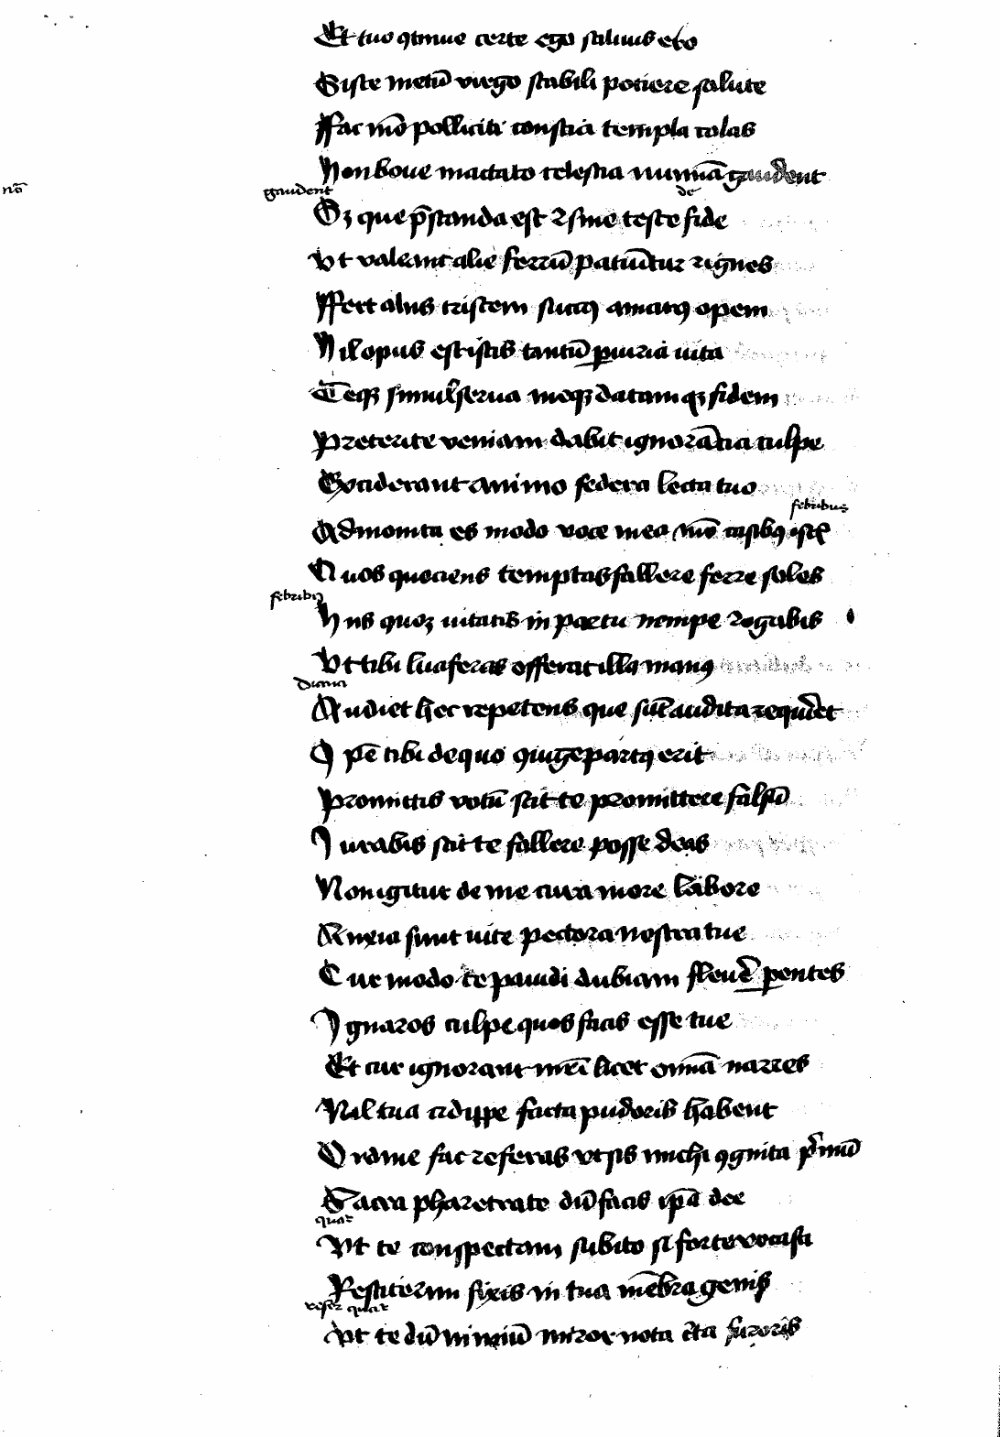 Et tuo qͥmue certe ego saluus ero
Siste metū virgo stabili potiere salute
Ffac mō polliciti conscia templa colas
Non boue mactato celestia numīa gaudent
nō
gaudent
de
Sꝫ que p̄standa est ⁊ sine teste fide
Vt valeant alie ferrū patiūtur ⁊ ignes
Ffert aliis tristem succꝰ amarꝰ opem
Nil opus est istis tantū ꝑiuria uita
Teqꝫ simul serua meqꝫ datamqꝫ fidem
Preterite veniam dabit ignorācia culpe
Exciderant animo federa lecta tuo
febribus
Admonita es modo voce mea mō casibꝰ istꝭ
Quos quociens temptas fallere ferre soles
febribꝰ
Hiis quoꝫ uitatis in partu nempe rogabis
Vt tibi luciferas offerat illa manꝰ
diana
Audiet hec repetens que sūt audita requir̄et
Ipē tibi de quo ꝯiuge partꝰ erit
Promittis votū scit te promittere falsū
Iurabis scit te fallere posse deas
Non igitur de me cura more laboro
Anxia sunt uite pectora nostra tue
Cur modo te pauidi dubiam fleuer̄ ꝑentes
Ignaros culpe quos facis esse tue
Et cur ignorant mr̄i licet omīa narres
Nil tua cidippe facta pudoris habent
Ordine fac referas vt sis michi ꝯgnita p̄mū
Sacra pharetrate dū facis ip̄a dee
quar
Vt te conspectam subito si forte vocasti
Restiterim fixis in tua mēbra genis
Vt te dū nimiū miror nota c̄ta furoris